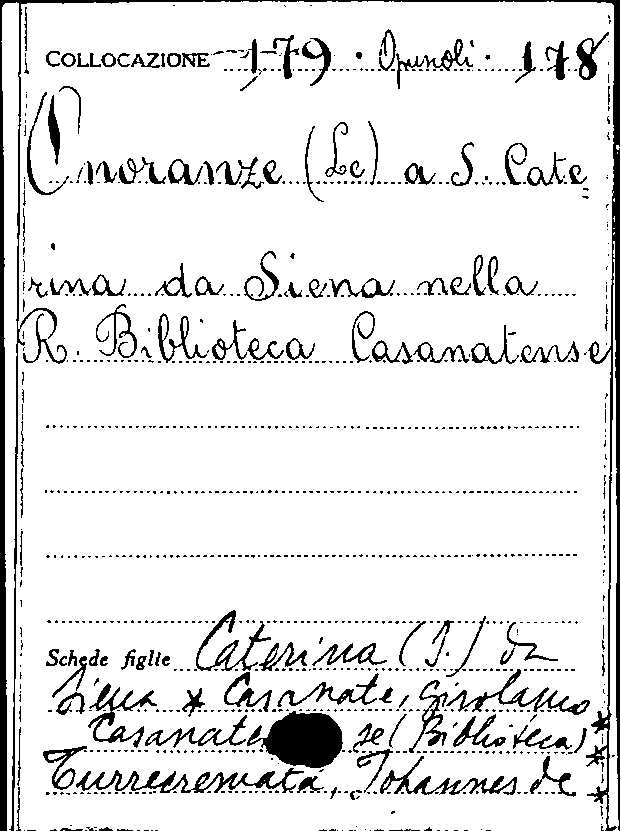 COLLOCAZIONE 179 · Opuscoli · 178
Onoranze (Le) a S. Cate=
rina da Siena nella
R. Biblioteca Casanatense
Schede figlie Caterina (S.) da
Siena * Casanate, Girolamo *
Casanate se (Biblioteca) *
Turrecremata, Johannes de *